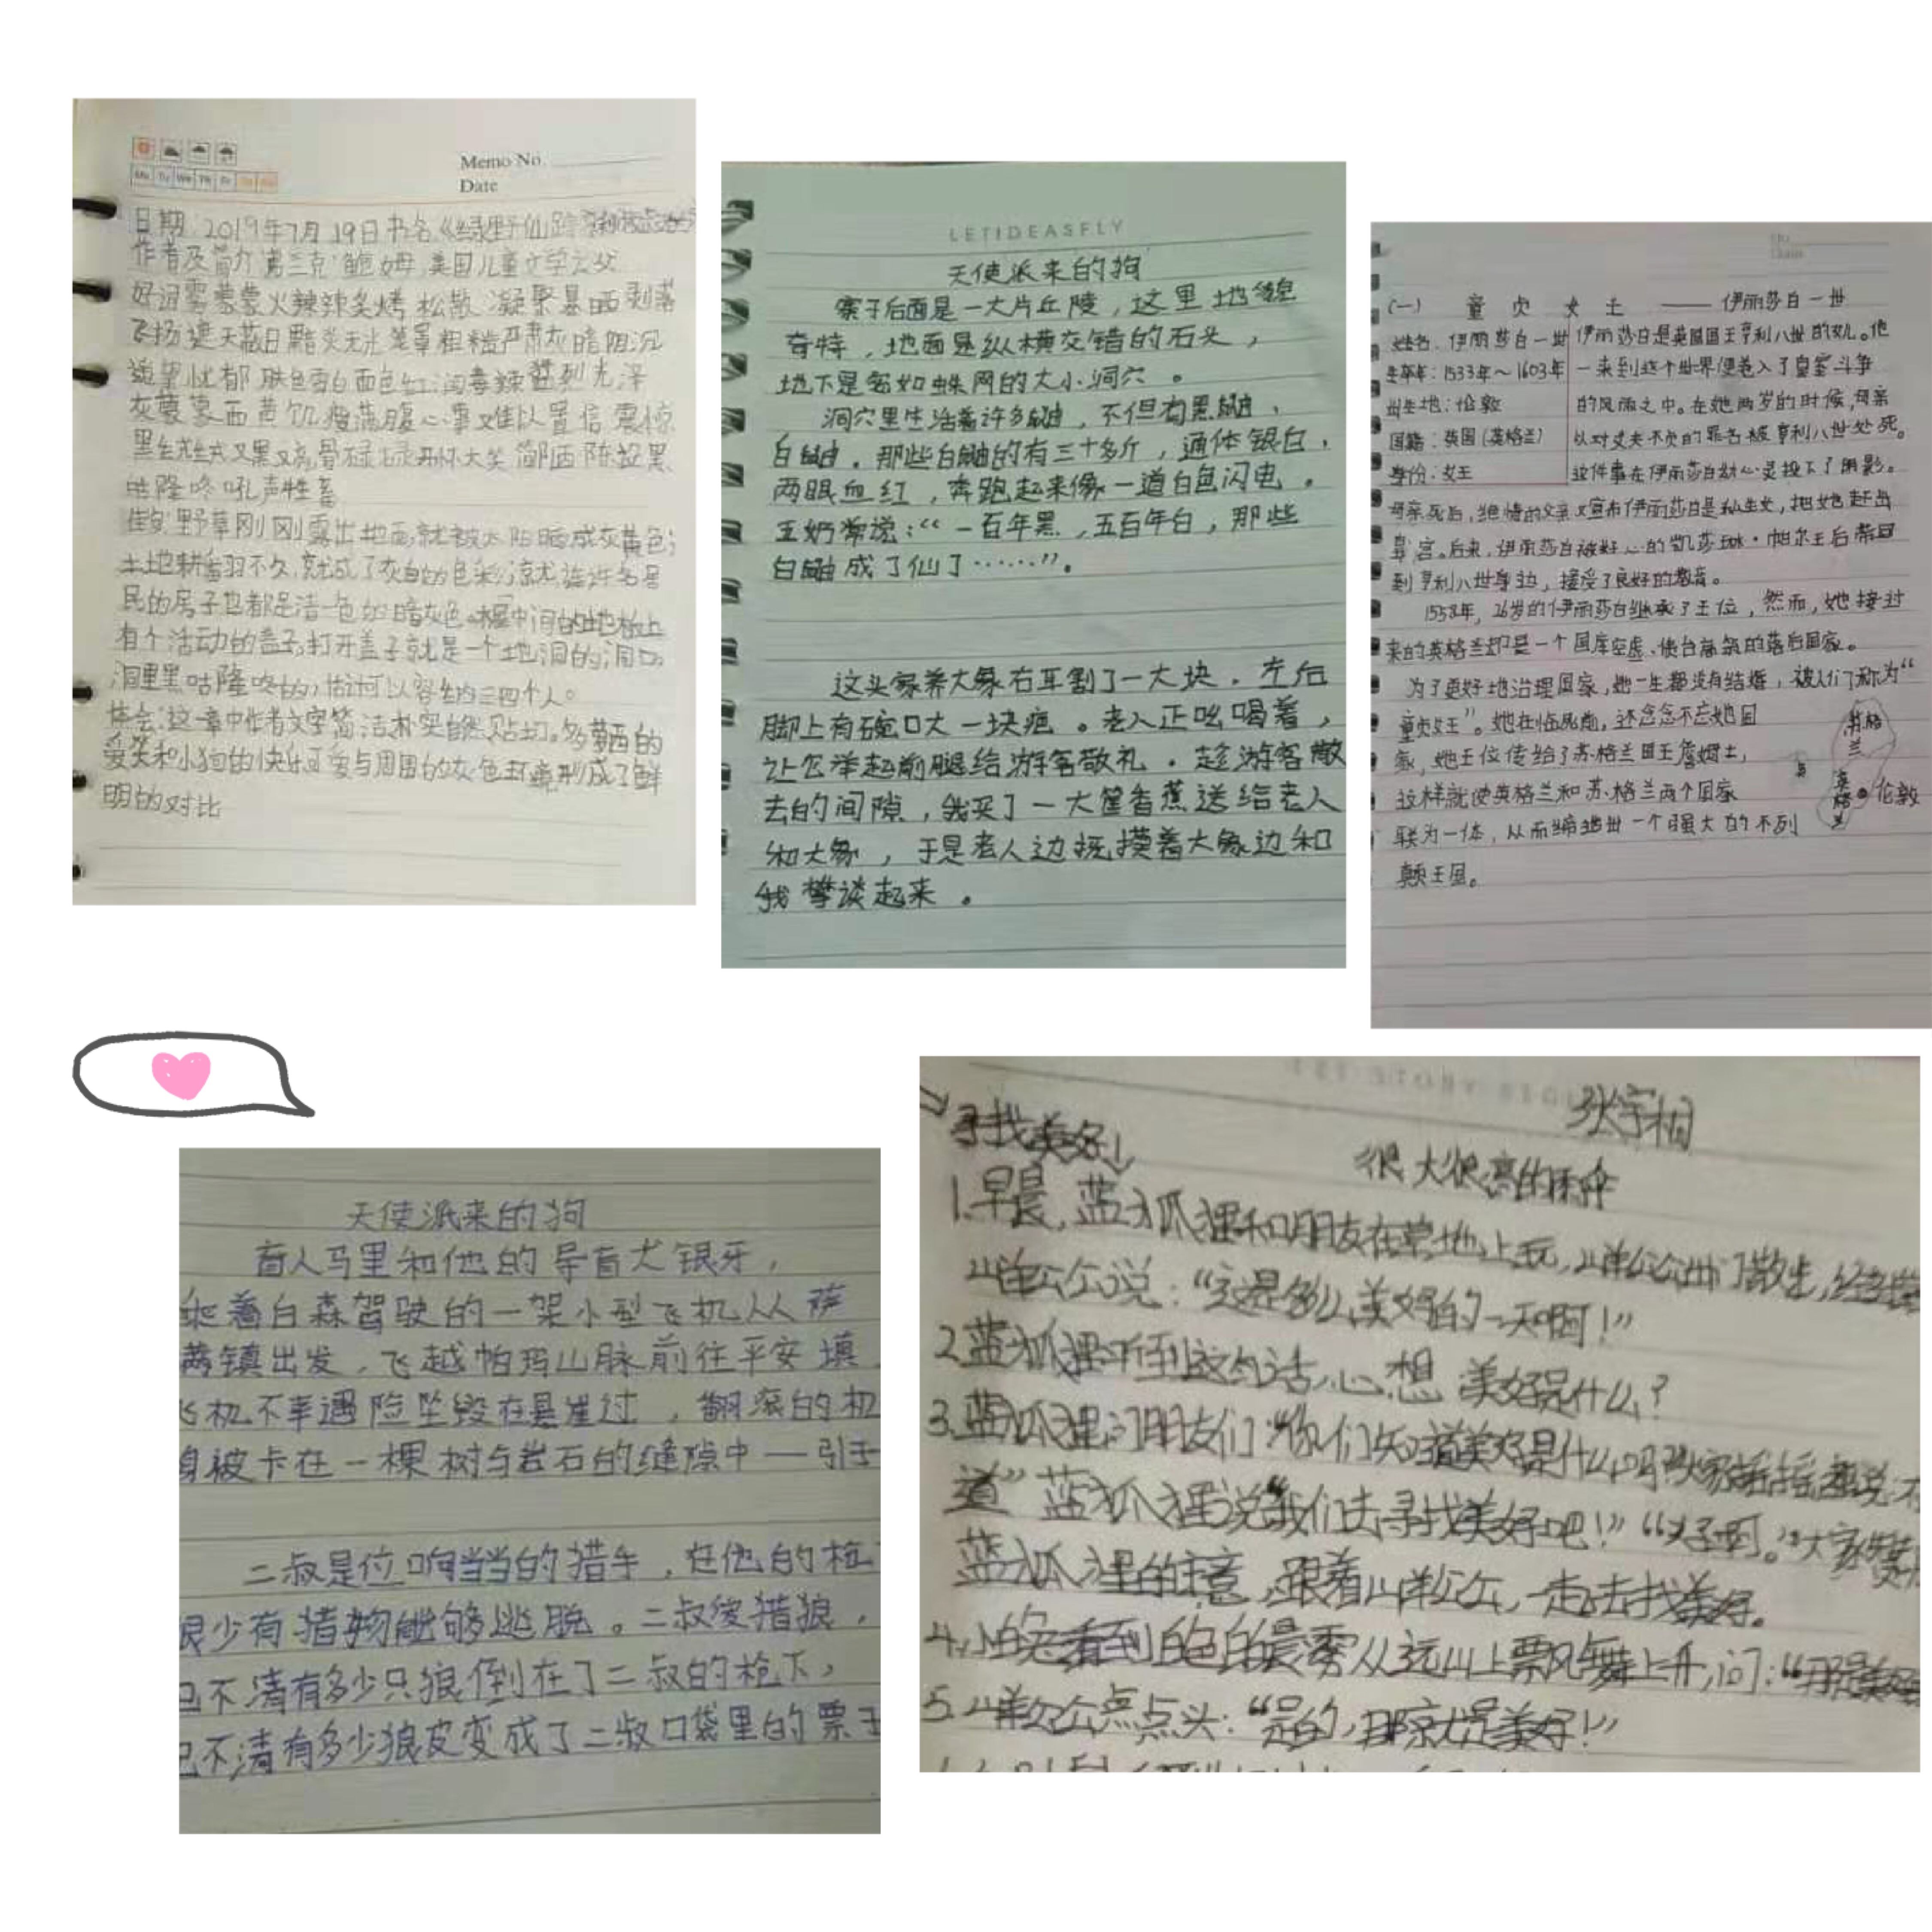 Memo No.
Date
日期:2019年7月19日书名《绿野仙踪
作者及简介 弗兰克·鲍姆,美国儿童文学之父
好词雾蒙蒙火辣辣炙烤 松散 凝聚暴晒剥落
飞扬遮天蔽日黯炎无光笼罩粗糙严肃灰暗阴沉
遥望忧郁 肤色雪白面色红润毒辣猛烈光泽
灰蒙蒙面黄饥瘦满腹心事难以置信 震惊
开怀大笑 简陋陈设黑
咕隆咚吼声牲畜
佳句:野草刚刚露出地面,就被太阳晒成灰黄色;
土地耕翻不久,就成了灰白的色彩;就连许多居
民的房子也都是清一色的暗灰色。棚中间的地板上
有个活动的盖子,打开盖子就是一个地洞的洞口,
洞里黑咕隆咚的,估计可以容纳三四个人。
体会:这一章中作者文字简洁朴实自然贴切。多萝西的
爱笑和小狗的快乐可爱与周围的灰色环境形成了鲜
明的对比
LETIDEASFLY
天使派来的狗
寨子后面是一大片丘陵,这里地貌
奇特,地面是纵横交错的石头,
地下是密如蛛网的大小洞穴。
洞穴里生活着许多鼬,不但有黑鼬、
白鼬。那些白鼬的有三十多斤,通体银白,
两眼血红,奔跑起来像一道白色闪电。
王奶常说:“一百年黑,五百年白,那些
白鼬成了仙了……”。
这头家养大象右耳割了一大块,左后
脚上有碗口大一块疤。老人正吆喝着,
让它举起前腿给游客敬礼。趁游客散
去的间隙,我买了一大筐香蕉送给老人
和大象,于是老人边抚摸着大象边和
我攀谈起来。
(一) 童贞女王 —— 伊丽莎白一世
姓名:伊丽莎白一世
生卒年:1533年~1603年
出生地:伦敦
国籍:英国(英格兰)
身份:女王
伊丽莎白是英国国王亨利八世的女儿。他
一来到这个世界便卷入了皇室斗争
的风雨之中。在她两岁的时候,母亲
以对丈夫不贞的罪名被亨利八世处死。
这件事在伊丽莎白幼心灵投下了阴影。
母亲死后,绝情的父亲又宣布伊丽莎白是私生女,把她赶出
皇宫。后来,伊丽莎白被好心的凯莎琳·帕尔王后带回
到亨利八世身边,接受了良好的教育。
1558年,26岁的伊丽莎白继承了王位,然而,她接过
来的英格兰却是一个国库空虚、债台高筑的落后国家。
为了更好地治理国家,她一生都没有结婚,被人们称为“
童贞女王”。她在临死前,还念念不忘她国
家,她王位传给了苏格兰国王詹姆士,
这样就使英格兰和苏格兰两个国家
联为一体,从而缔造出一个强大的不列
颠王国。
苏格
兰
英
格
兰
伦敦
天使派来的狗
盲人马里和他的导盲犬银牙,
乘着白森驾驶的一架小型飞机从萨
满镇出发,飞越帕玛山脉前往平安填
飞机不幸遇险坠毁在悬崖过,翻滚的机
身被卡在一棵树与岩石的缝隙中一引于
二叔是位响当当的猎手,在他的枪
很少有猎物能够逃脱。二叔爱猎狼,
不清有多少只狼倒在了二叔的枪下,
不清有多少狼皮变成了二叔口袋里的票子
张宇相
寻找美好
很大很高的雨伞
1.早晨,蓝狐狸和朋友在草地上玩,山羊公公出门散步,
山羊公公说:“这是多么美好的一天啊!”
2.蓝狐狸听到这句话,心想 美好是什么?
3.蓝狐狸问朋友们:“你们知道美好是什么吗?”大家摇摇头说:不
道” 蓝狐狸说“我们去寻找美好吧!” “好啊。”大家
蓝狐狸的主意,跟着山羊公公,一起去找美好。
4.小白兔看到白色的晨雾从远山上飘风舞上升,问:“那是美好
5.山羊公公点点头:“是的,那就是美好!”